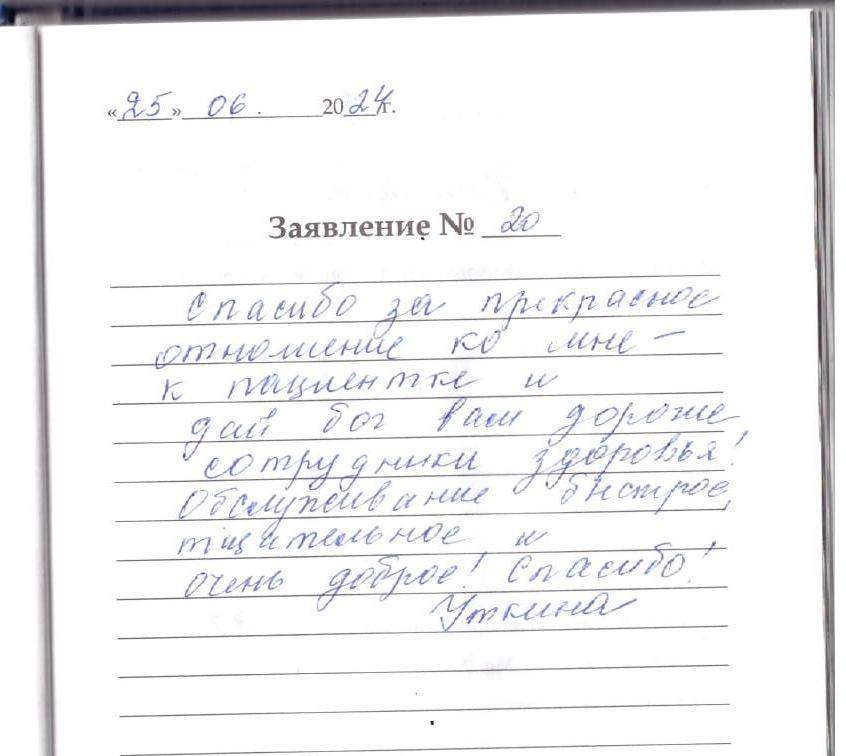 «25» 06. 2024г.
Заявление № 20
Спасибо за прекрасное
отношение ко мне –
к пациентке и
дай бог вам дорогие
сотрудники здоровья!
Обслуживание быстрое,
тщательное и
очень доброе! Спасибо!
Уткина